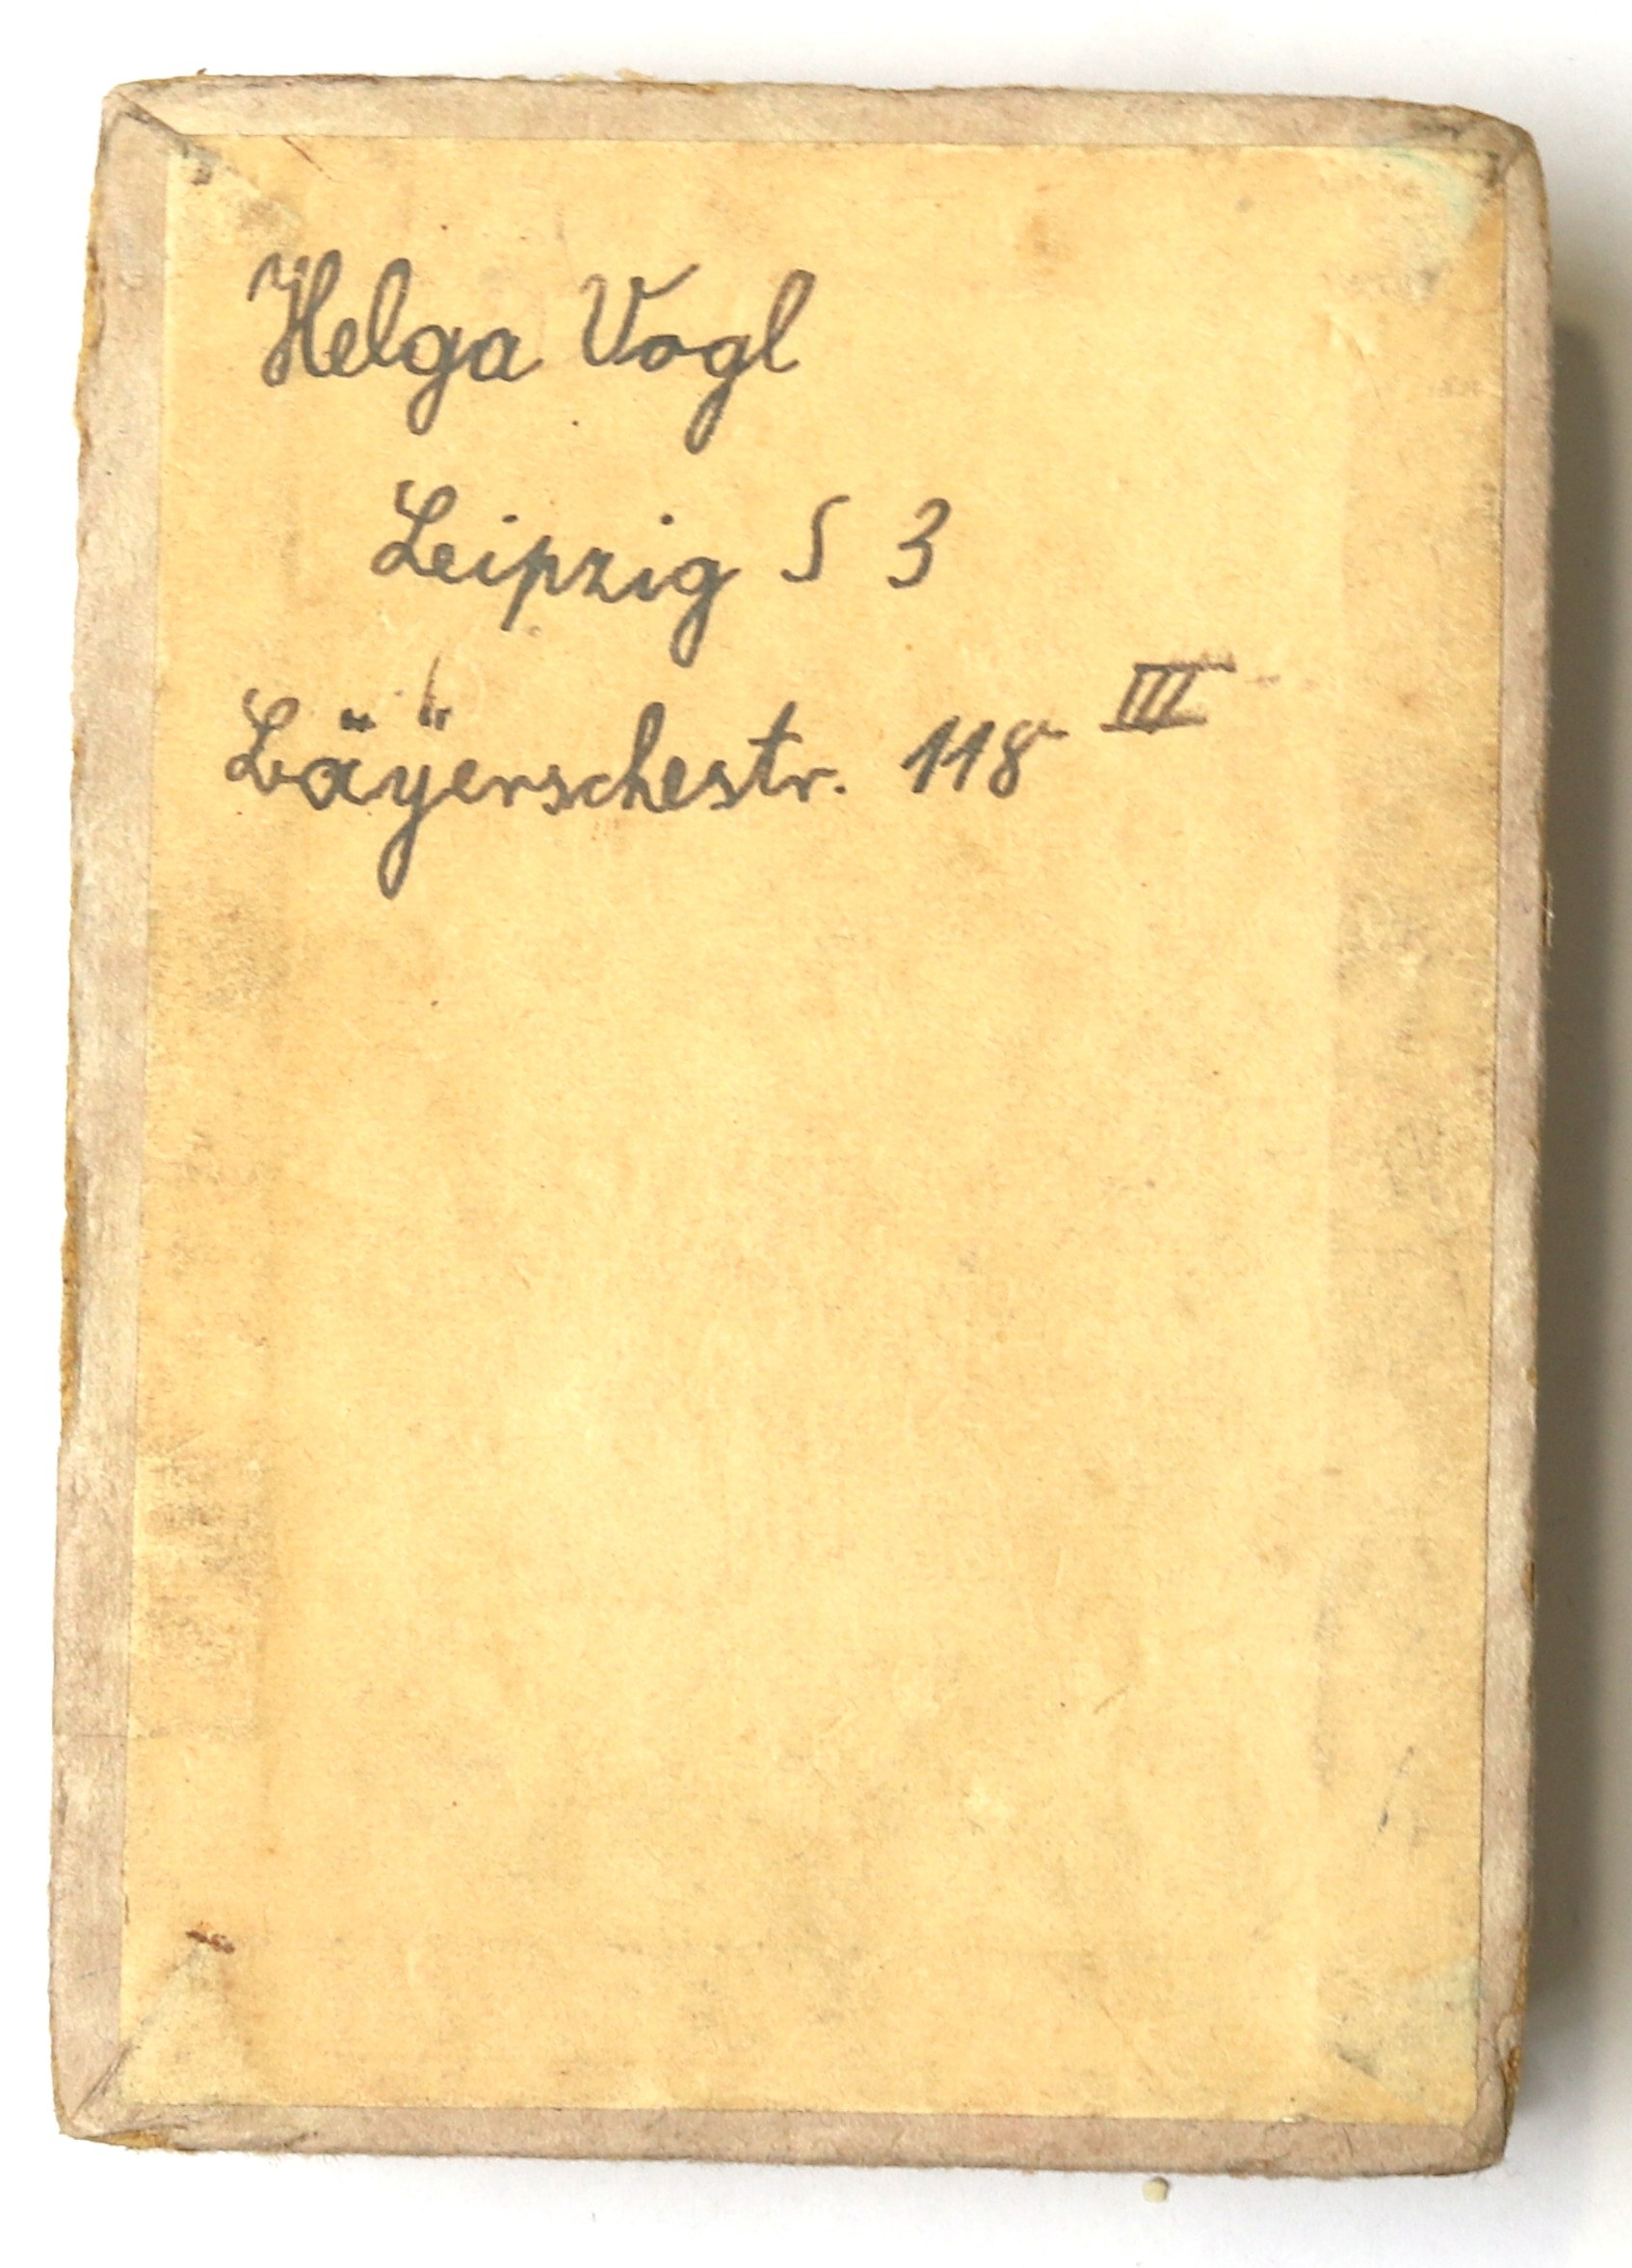 Helga Vogl
Leipzig S 3
Bäyerschestr. 118 III